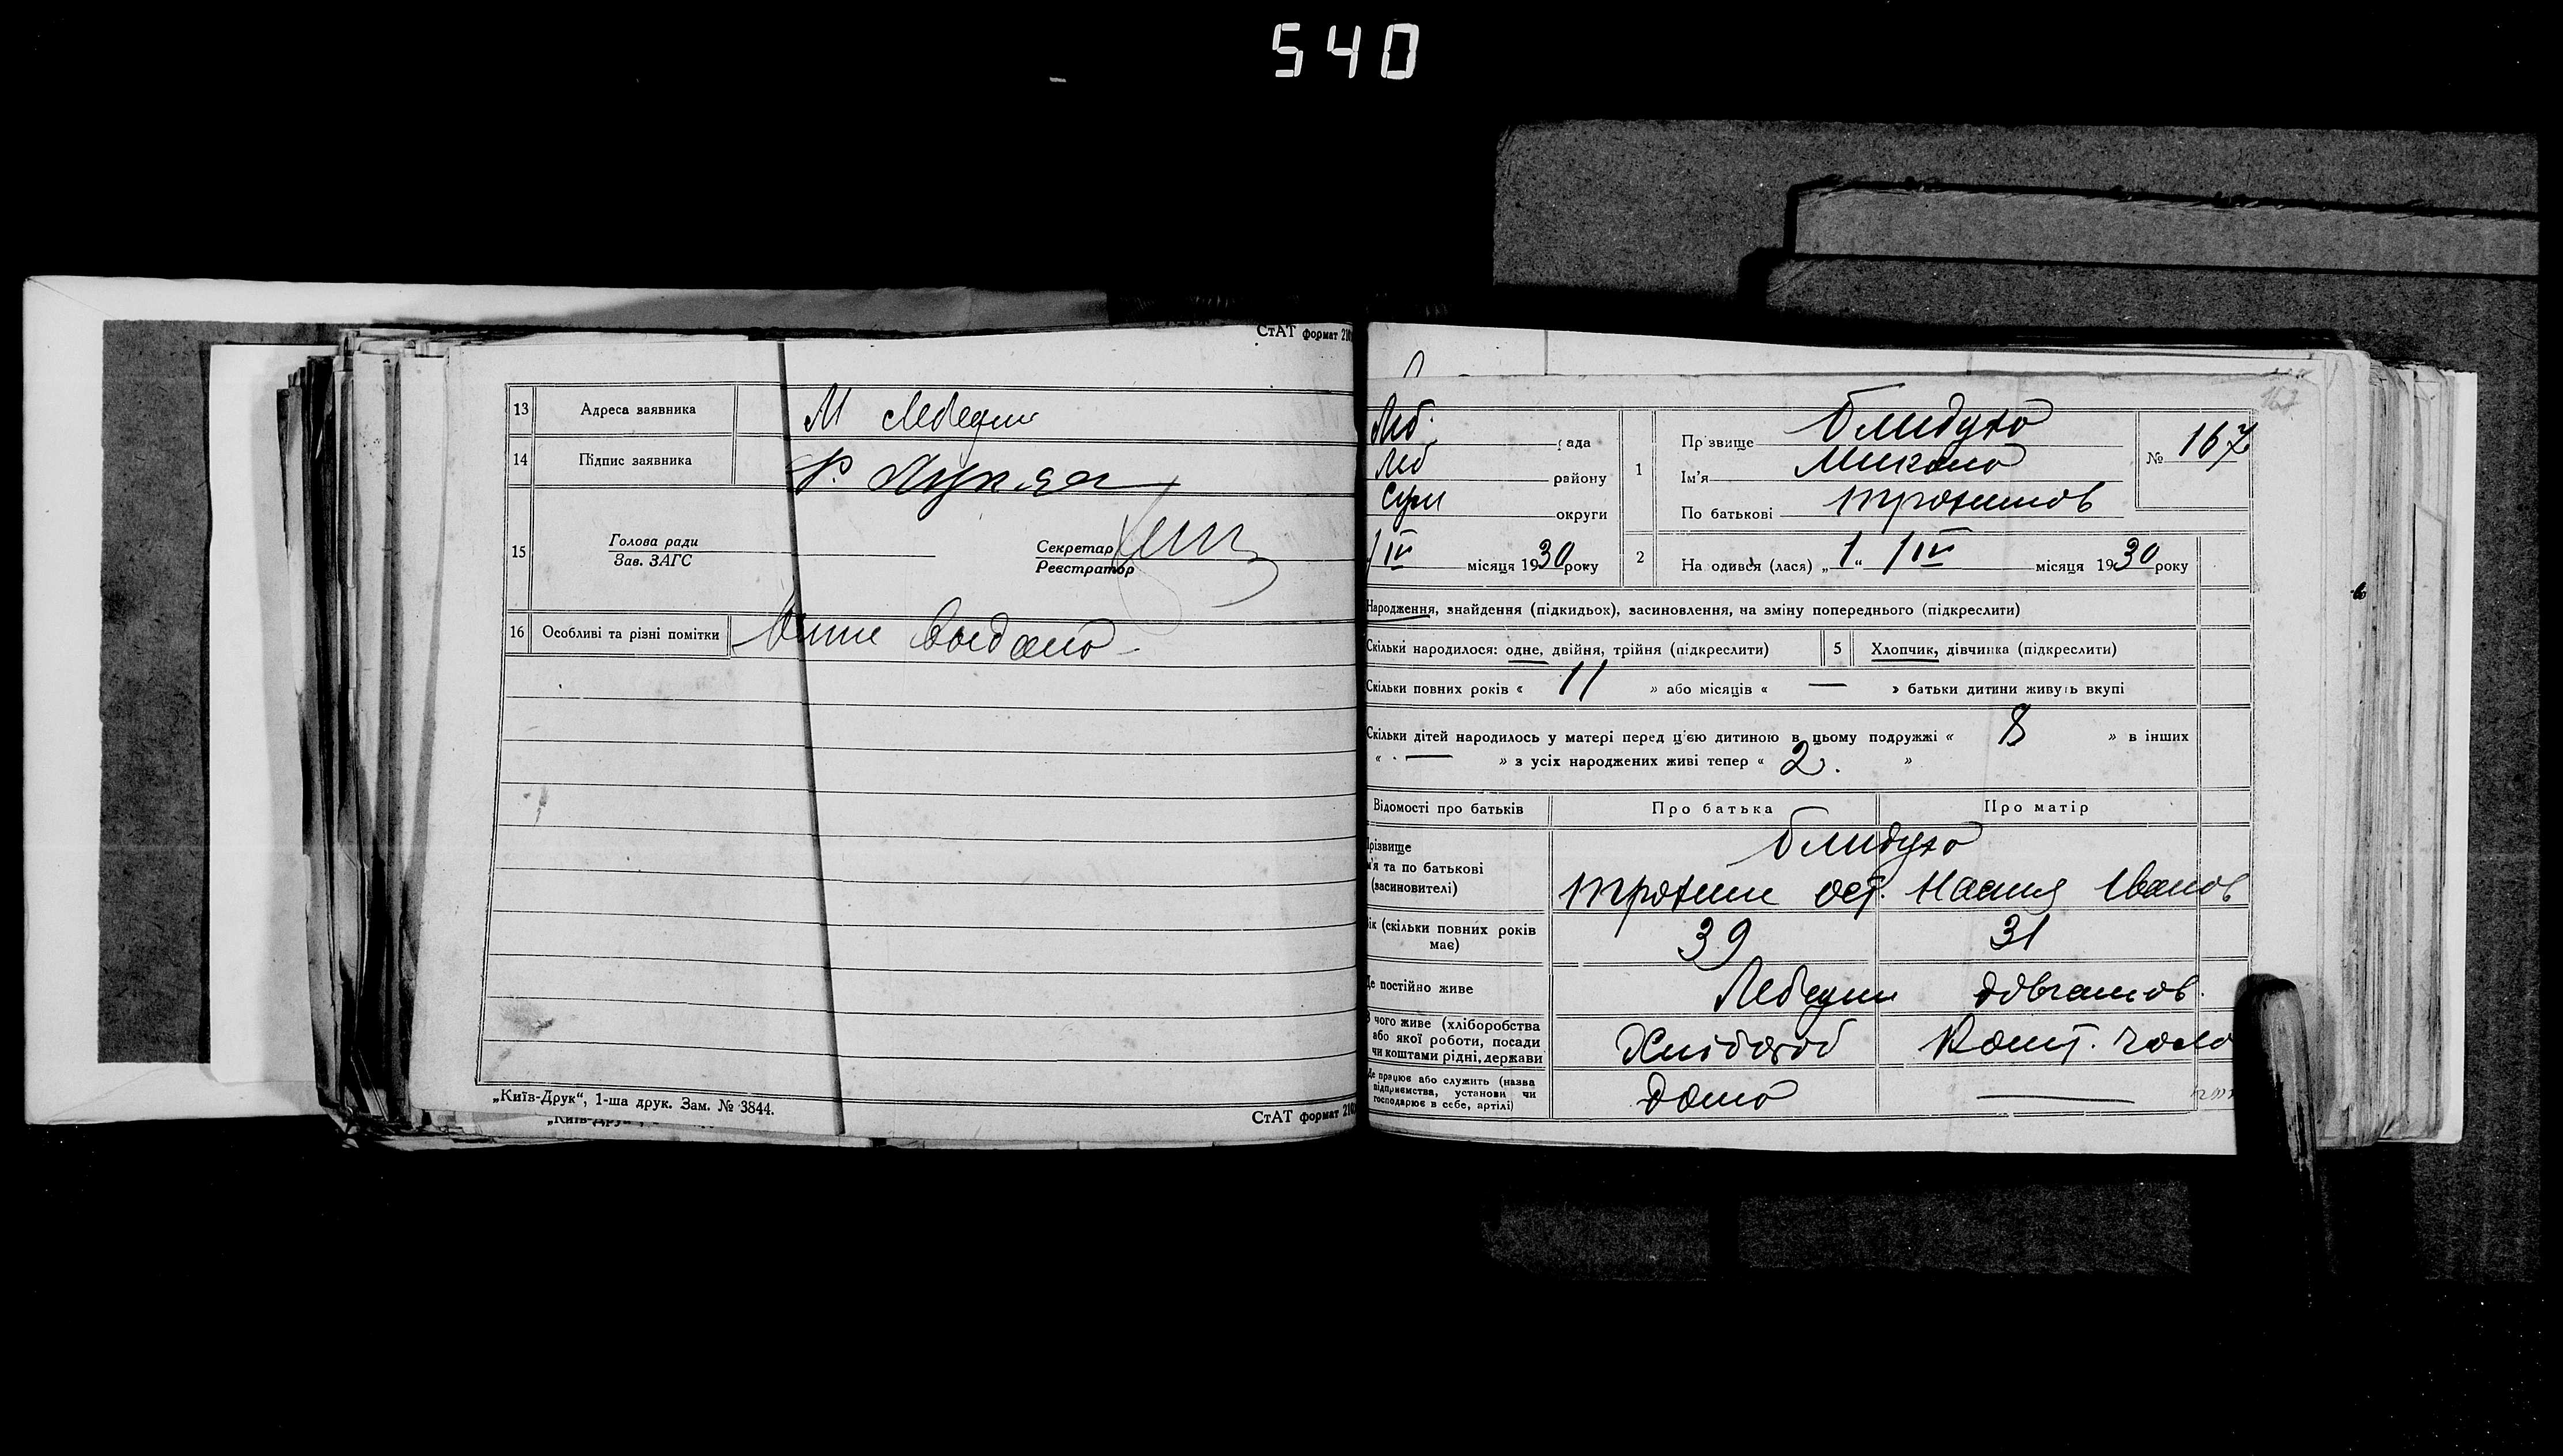 540
СтАТ формат 210
13 Адреса заявника М Лебедин
14 Підпис заявника
15 Голова ради
Зав. ЗАГС
Секретар
Реєстратор
16 Особливі та різні помітки
„Київ-Друк“, 1-ша друк. Зам. № 3844.
СтАТ формат 210
Леб. рада
Леб району
Сум округи
IV місяця 1930 року
1 Прізвище Блидухо
Ім'я Микола
По батькові Трохимов
№ 167
2 Народився (лася) „1“ IV місяця 1930 року
Народження, знайдення (підкидьок), засиновлення, на зміну попереднього (підкреслити)
Скільки народилося: одне, двійня, трійня (підкреслити)
5 Хлопчик, дівчинка (підкреслити)
Скільки повних років « 11 » або місяців « — » батьки дитини живуть вкупі
Скільки дітей народилось у матері перед цією дитиною в цьому подружжі « 8 » в інших
« — » з усіх народжених живі тепер « 2. »
Відомості про батьків Про батька Про матір
Прізвище
ім'я та по батькові
(засиновителі)
Блидухо
Трохим Ост. Настя Іванов
Вік (скільки повних років
має) 39 31
Де постійно живе Лебедин
З чого живе (хліборобства
або якої роботи, посади
чи коштами рідні, держави
Хлібороб Кошт. чоло
Де працює або служить (назва
підприємства, установи чи
господарює в себе, артілі)
дома —